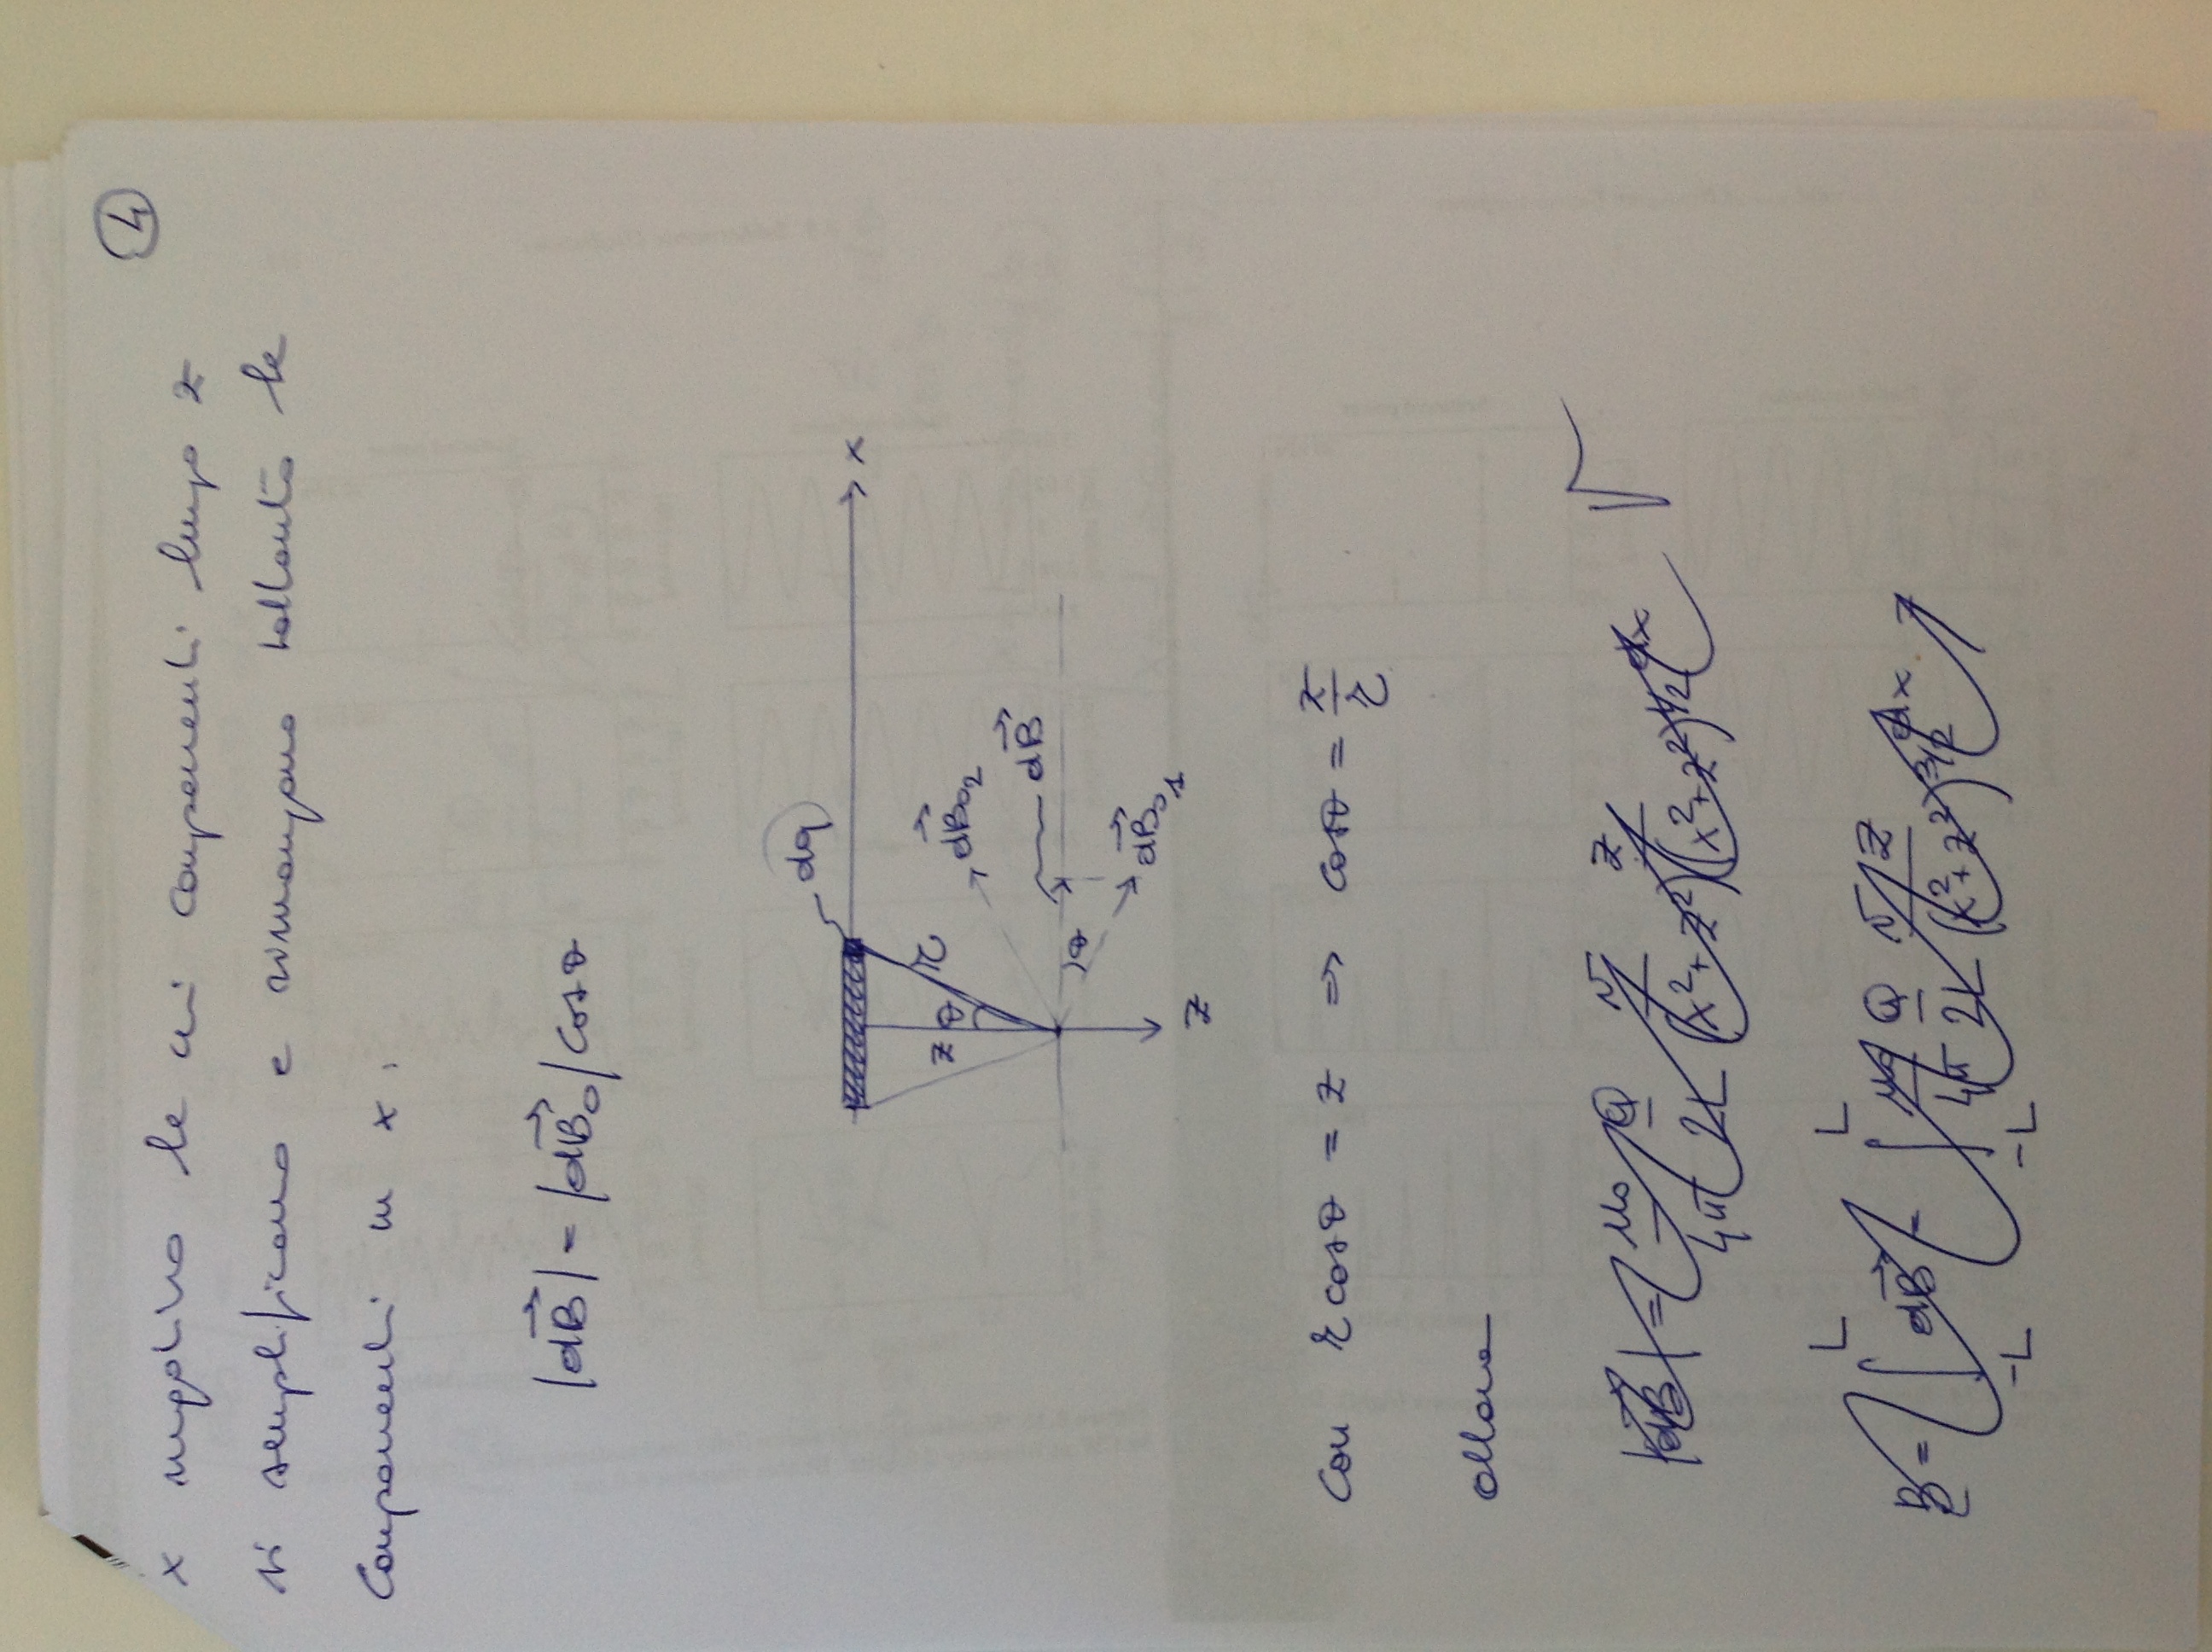 4
x negativo le cui componenti lungo z
si semplificano e rimangono soltanto le
componenti in x.
|dB⃗| = |dB⃗₀| cosθ
dq
x
z θ r
dB⃗₀₂
dB⃗
θ
dB⃗₀₁
z
con r cosθ = z ⇒ cosθ = z/r
allora
|dB⃗| = μ₀/4π Q/2L v/(x²+z²) z/(x²+z²)^1/2 dx
B = ∫_{-L}^{L} dB⃗ = ∫_{-L}^{L} μ₀/4π Q/2L v z/(x²+z²)^3/2 dx